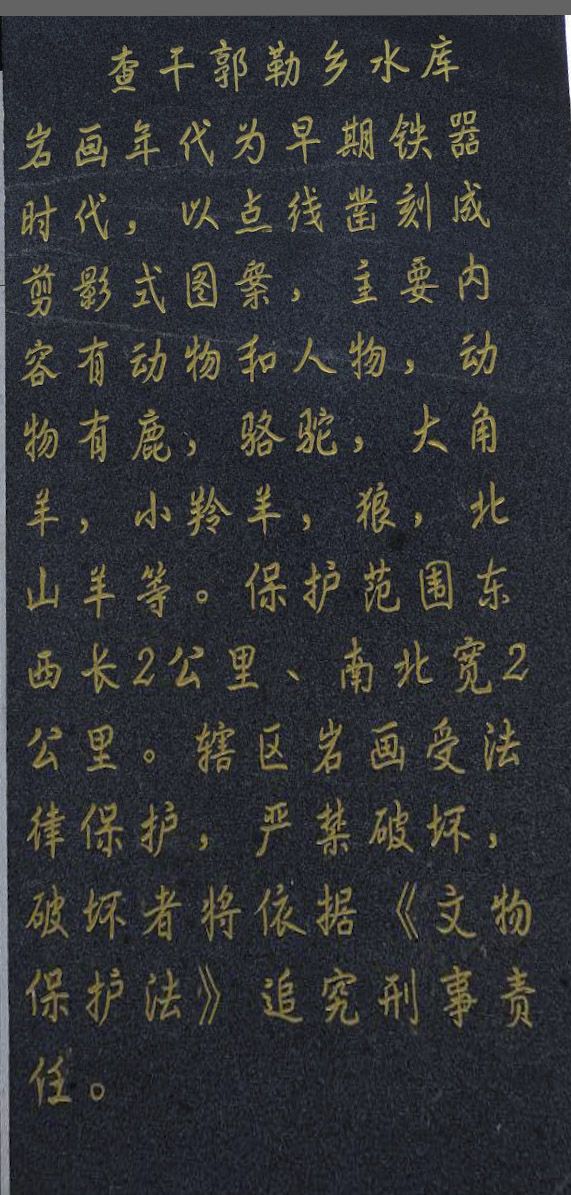 查干郭勒乡水库
岩画年代为早期铁器
时代，以点线凿刻成
剪影式图案，主要内
容有动物和人物，动
物有鹿，骆驼，大角
羊，小羚羊，狼，北
山羊等。保护范围东
西长2公里、南北宽2
公里。辖区岩画受法
律保护，严禁破坏，
破坏者将依据《文物
保护法》追究刑事责
任。